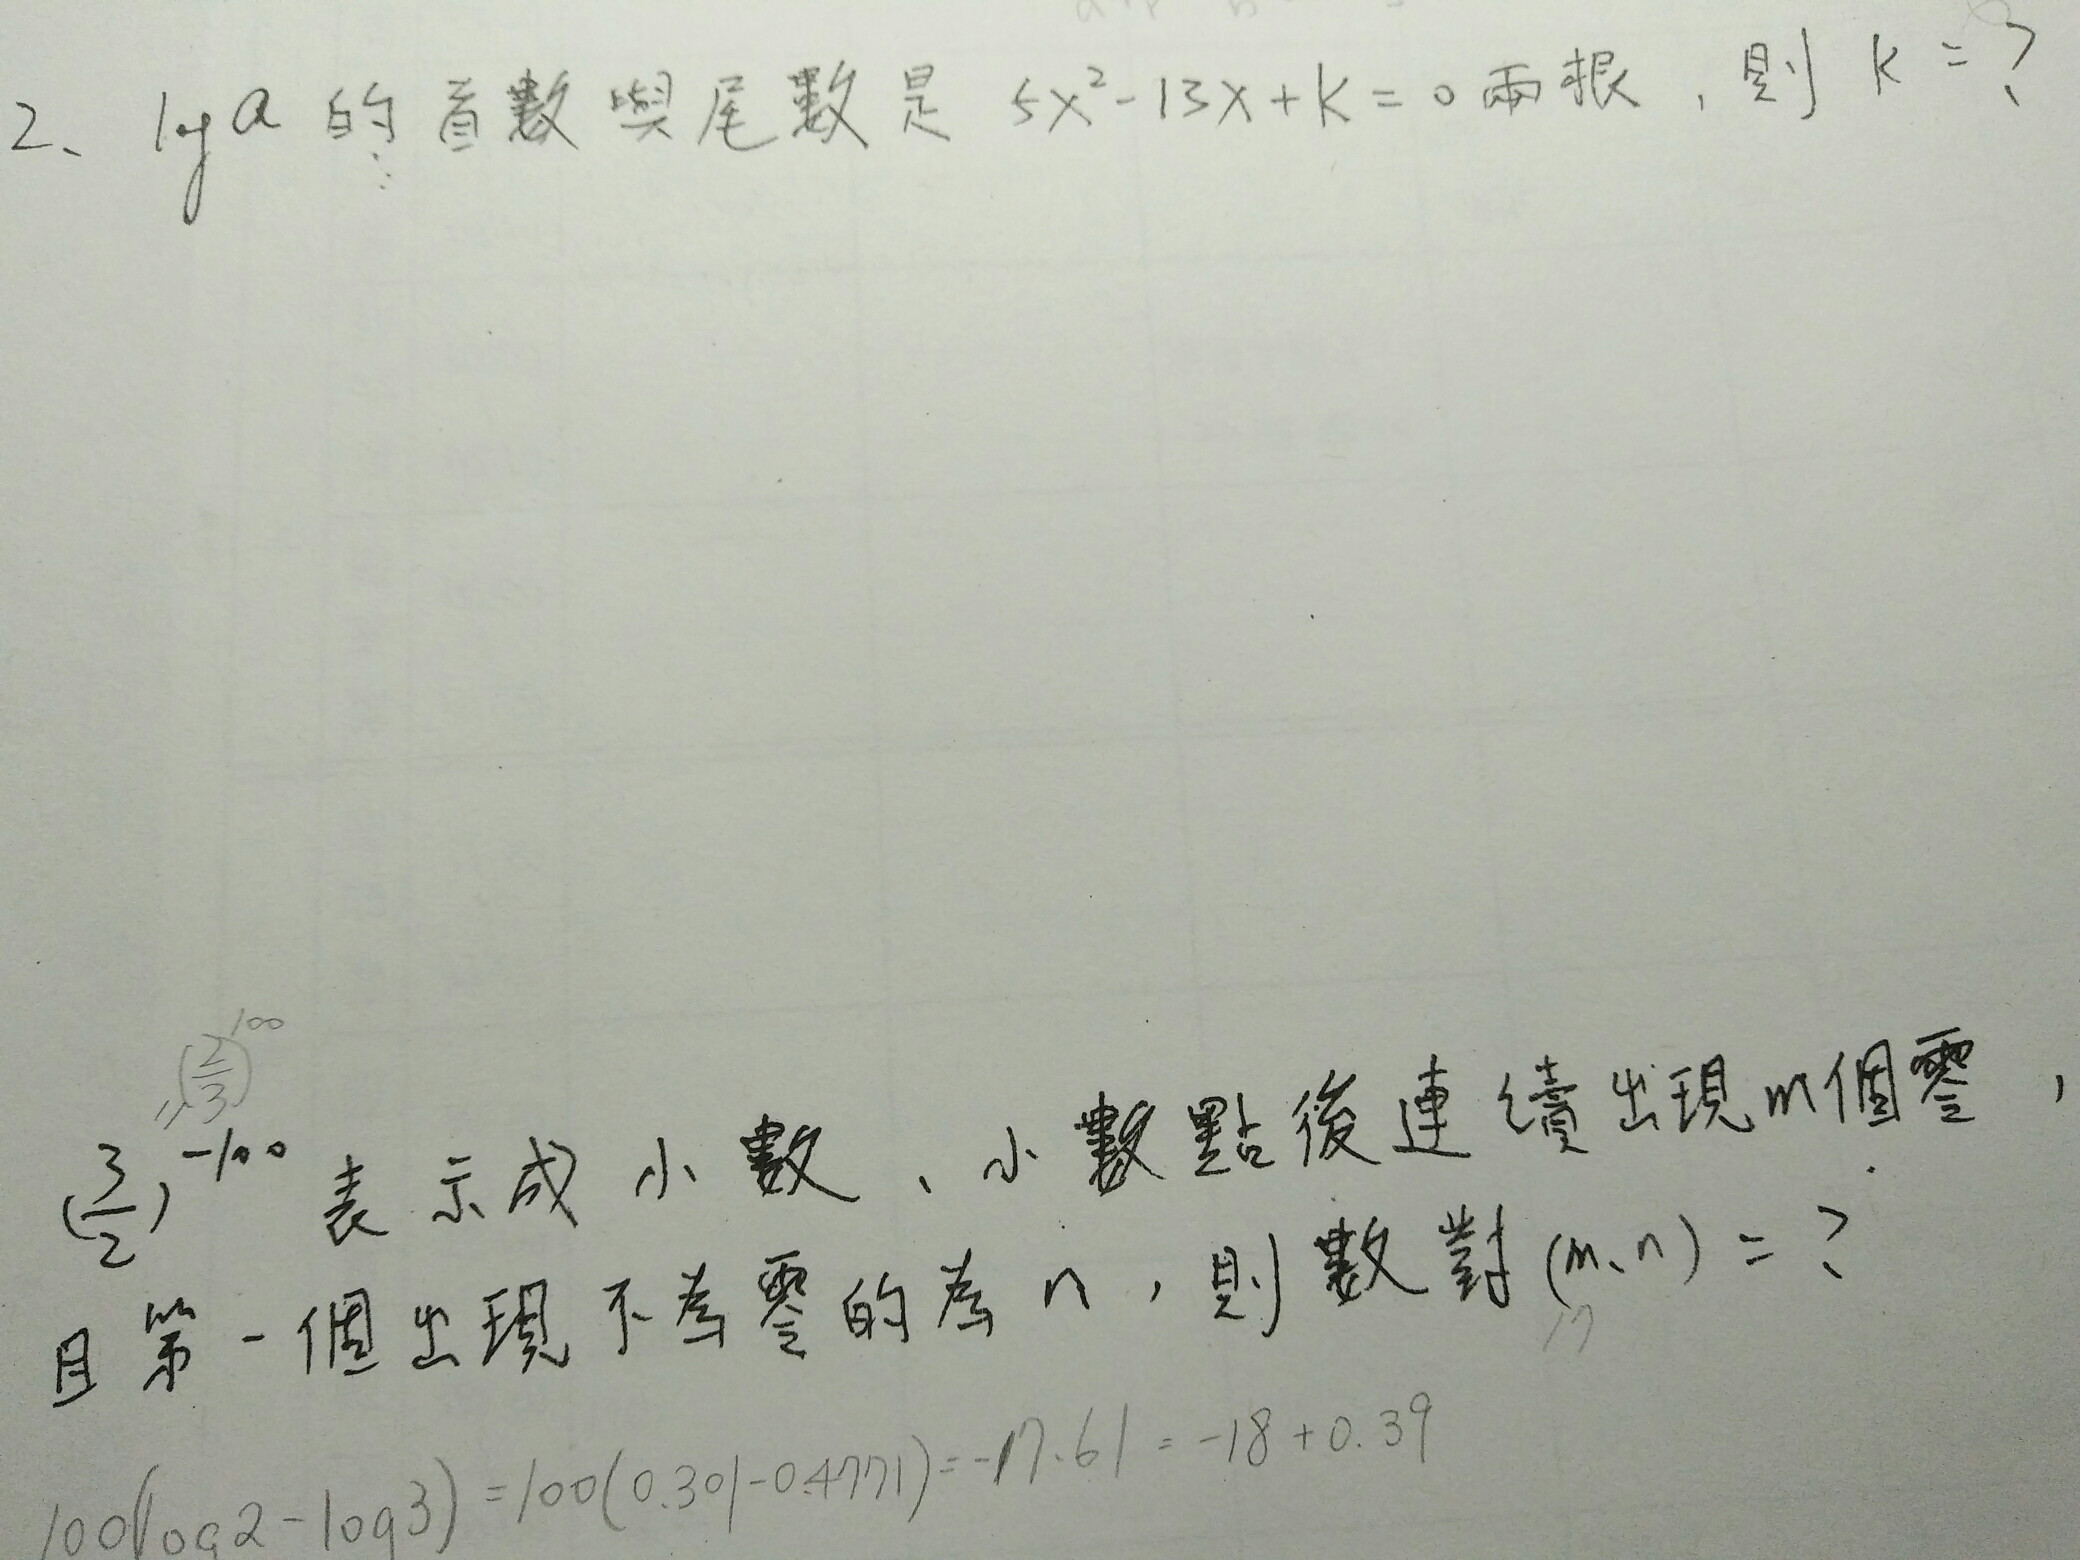 2、log a 的首數與尾數是 5x²-13x+k=0 兩根,則 k=?
=(2/3)^100
(3/2)^-100 表示成小數、小數點後連續出現m個零,
且第一個出現不為零的為n,則數對(m、n)=?
17
100(log2-log3)=100(0.301-0.4771)=-17.61=-18+0.39